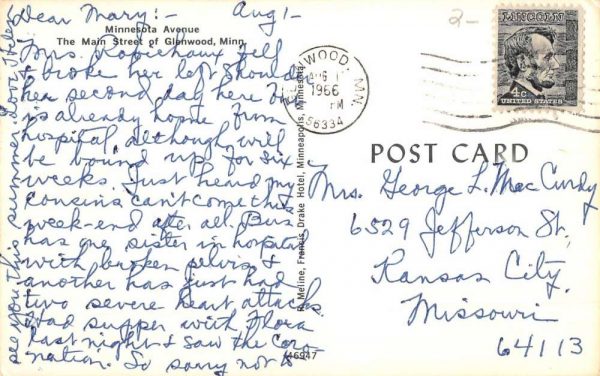 Dear Mary:- Aug 1-
Minnesota Avenue
The Main Street of Glenwood, Minn.
Mrs. Robichaux fell
& broke her left shoulder
her second day here
is already home from
hospital, although will
be bound up for six
weeks. Just heard my
cousins can't come this
week-end after all. Bus
has one sister in hospital
with broken pelvis &
another has just had
two severe heart attacks.
Had supper with Flora
last night & saw the Coro-
nation. So sorry not to
see you this summer. Love Helen
46947
R. Meline, Francis Drake Hotel, Minneapolis, Minnesota
GLENWOOD, MN.
AUG 1
1966
PM
56334
2-
LINCOLN
4c
UNITED STATES
POST CARD
Mrs. George L. MacCurdy
6529 Jefferson St.
Kansas City,
Missouri
64113